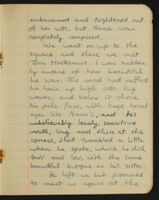 embarrassed and frightened out
of her wits, but Nancy was
completely composed.
We went on up to the
square, and there we met
Jim Mackenzie. I was sudden-
ly aware of how beautiful
he was. The wind had ruffled
his hair up high into big
waves, and below it shone
his pale face, with huge hazel
eyes like Nana's, and his
unbelievably lovely, sensitive
mouth, long and thin at the
corners, that trembled a little
when he spoke, which he did
fast and low, with the same
beautiful timbre in his voice.
He left us but promised
to meet us again at the